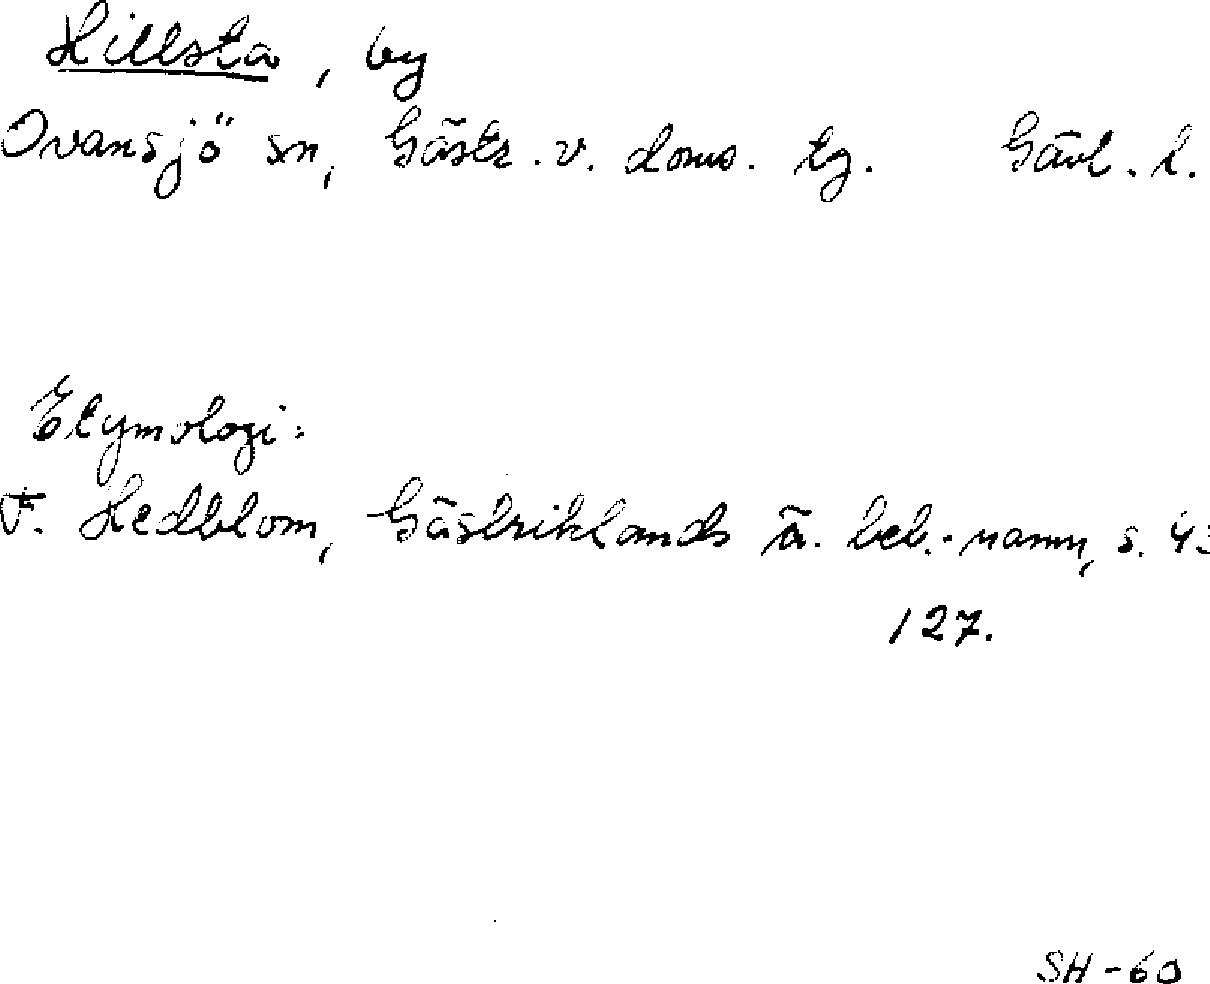 Hillsta, by
Ovansjö sn, Gästr. v. doms. tg. Gävl. l.
Etymologi:
F. Hedblom, Gästriklands ä. beb.-namn, s. 43
127.
SH-60